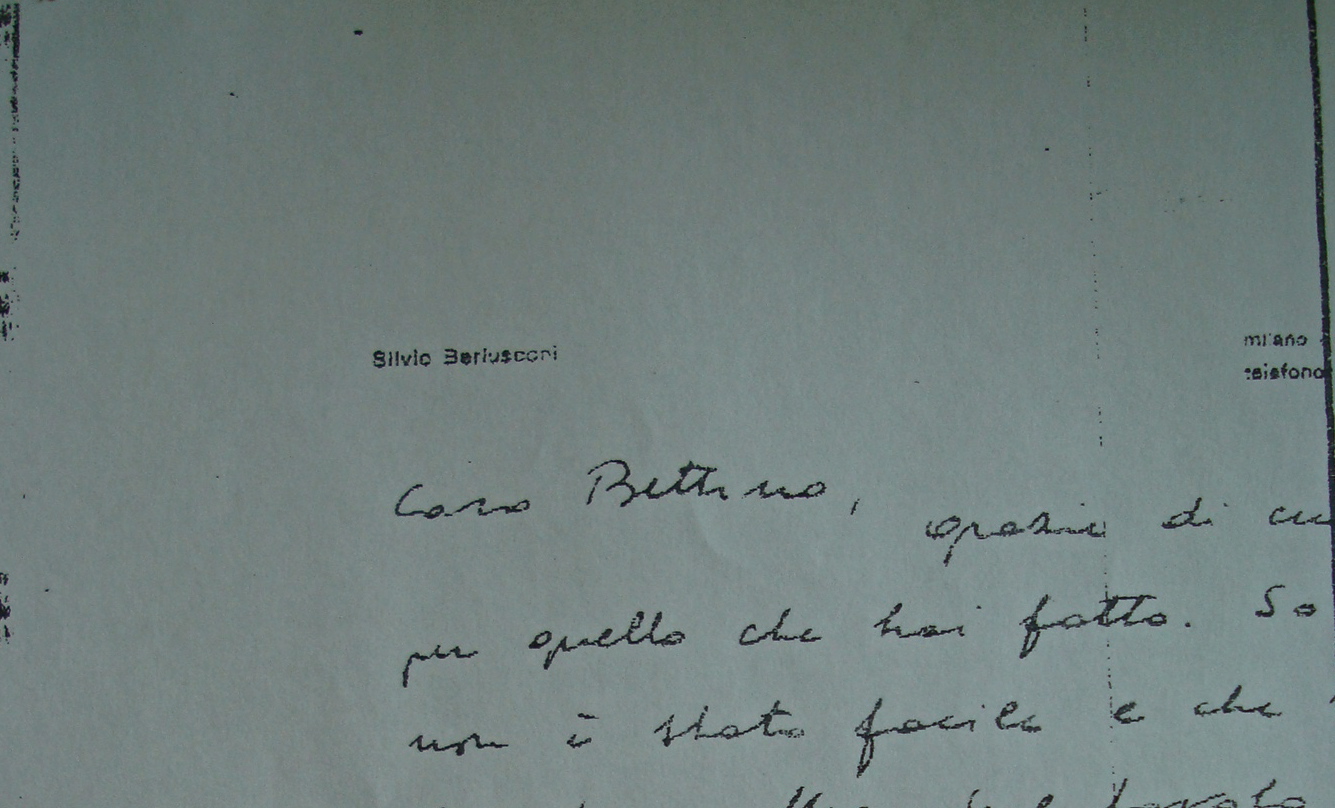 Silvio Berlusconi
milano
telefono
Caro Bettino, grazie di cu
per quello che hai fatto. So
non è stato facile e che